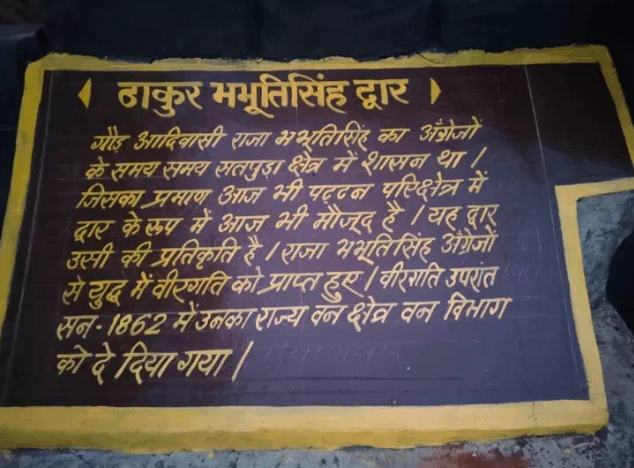 ठाकुर भभूतिसिंह द्वार
गौड़ आदिवासी राजा भभूतिसिंह का अँग्रेजों
के समय समय सतपुड़ा क्षेत्र में शासन था।
जिसका प्रमाण आज भी पट्टन परिक्षेत्र में
द्वार के रूप में आज भी मौजूद है। यह द्वार
उसी की प्रतिकृति है। राजा भभूतिसिंह अँग्रेजों
से युद्ध में वीरगति को प्राप्त हुए। वीरगति उपरांत
सन-1862 में उनका राज्य वन क्षेत्र वन विभाग
को दे दिया गया।